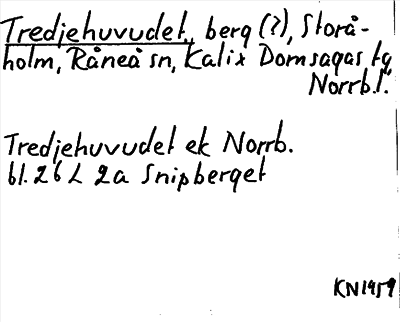 Tredjehuvudet, berg (?), Storå-
holm, Råneå sn, Kalix Domsagas tg
Norrb.l.
Tredjehuvudet ek Norrb.
bl. 26 L 2a Snipberget
KN1959